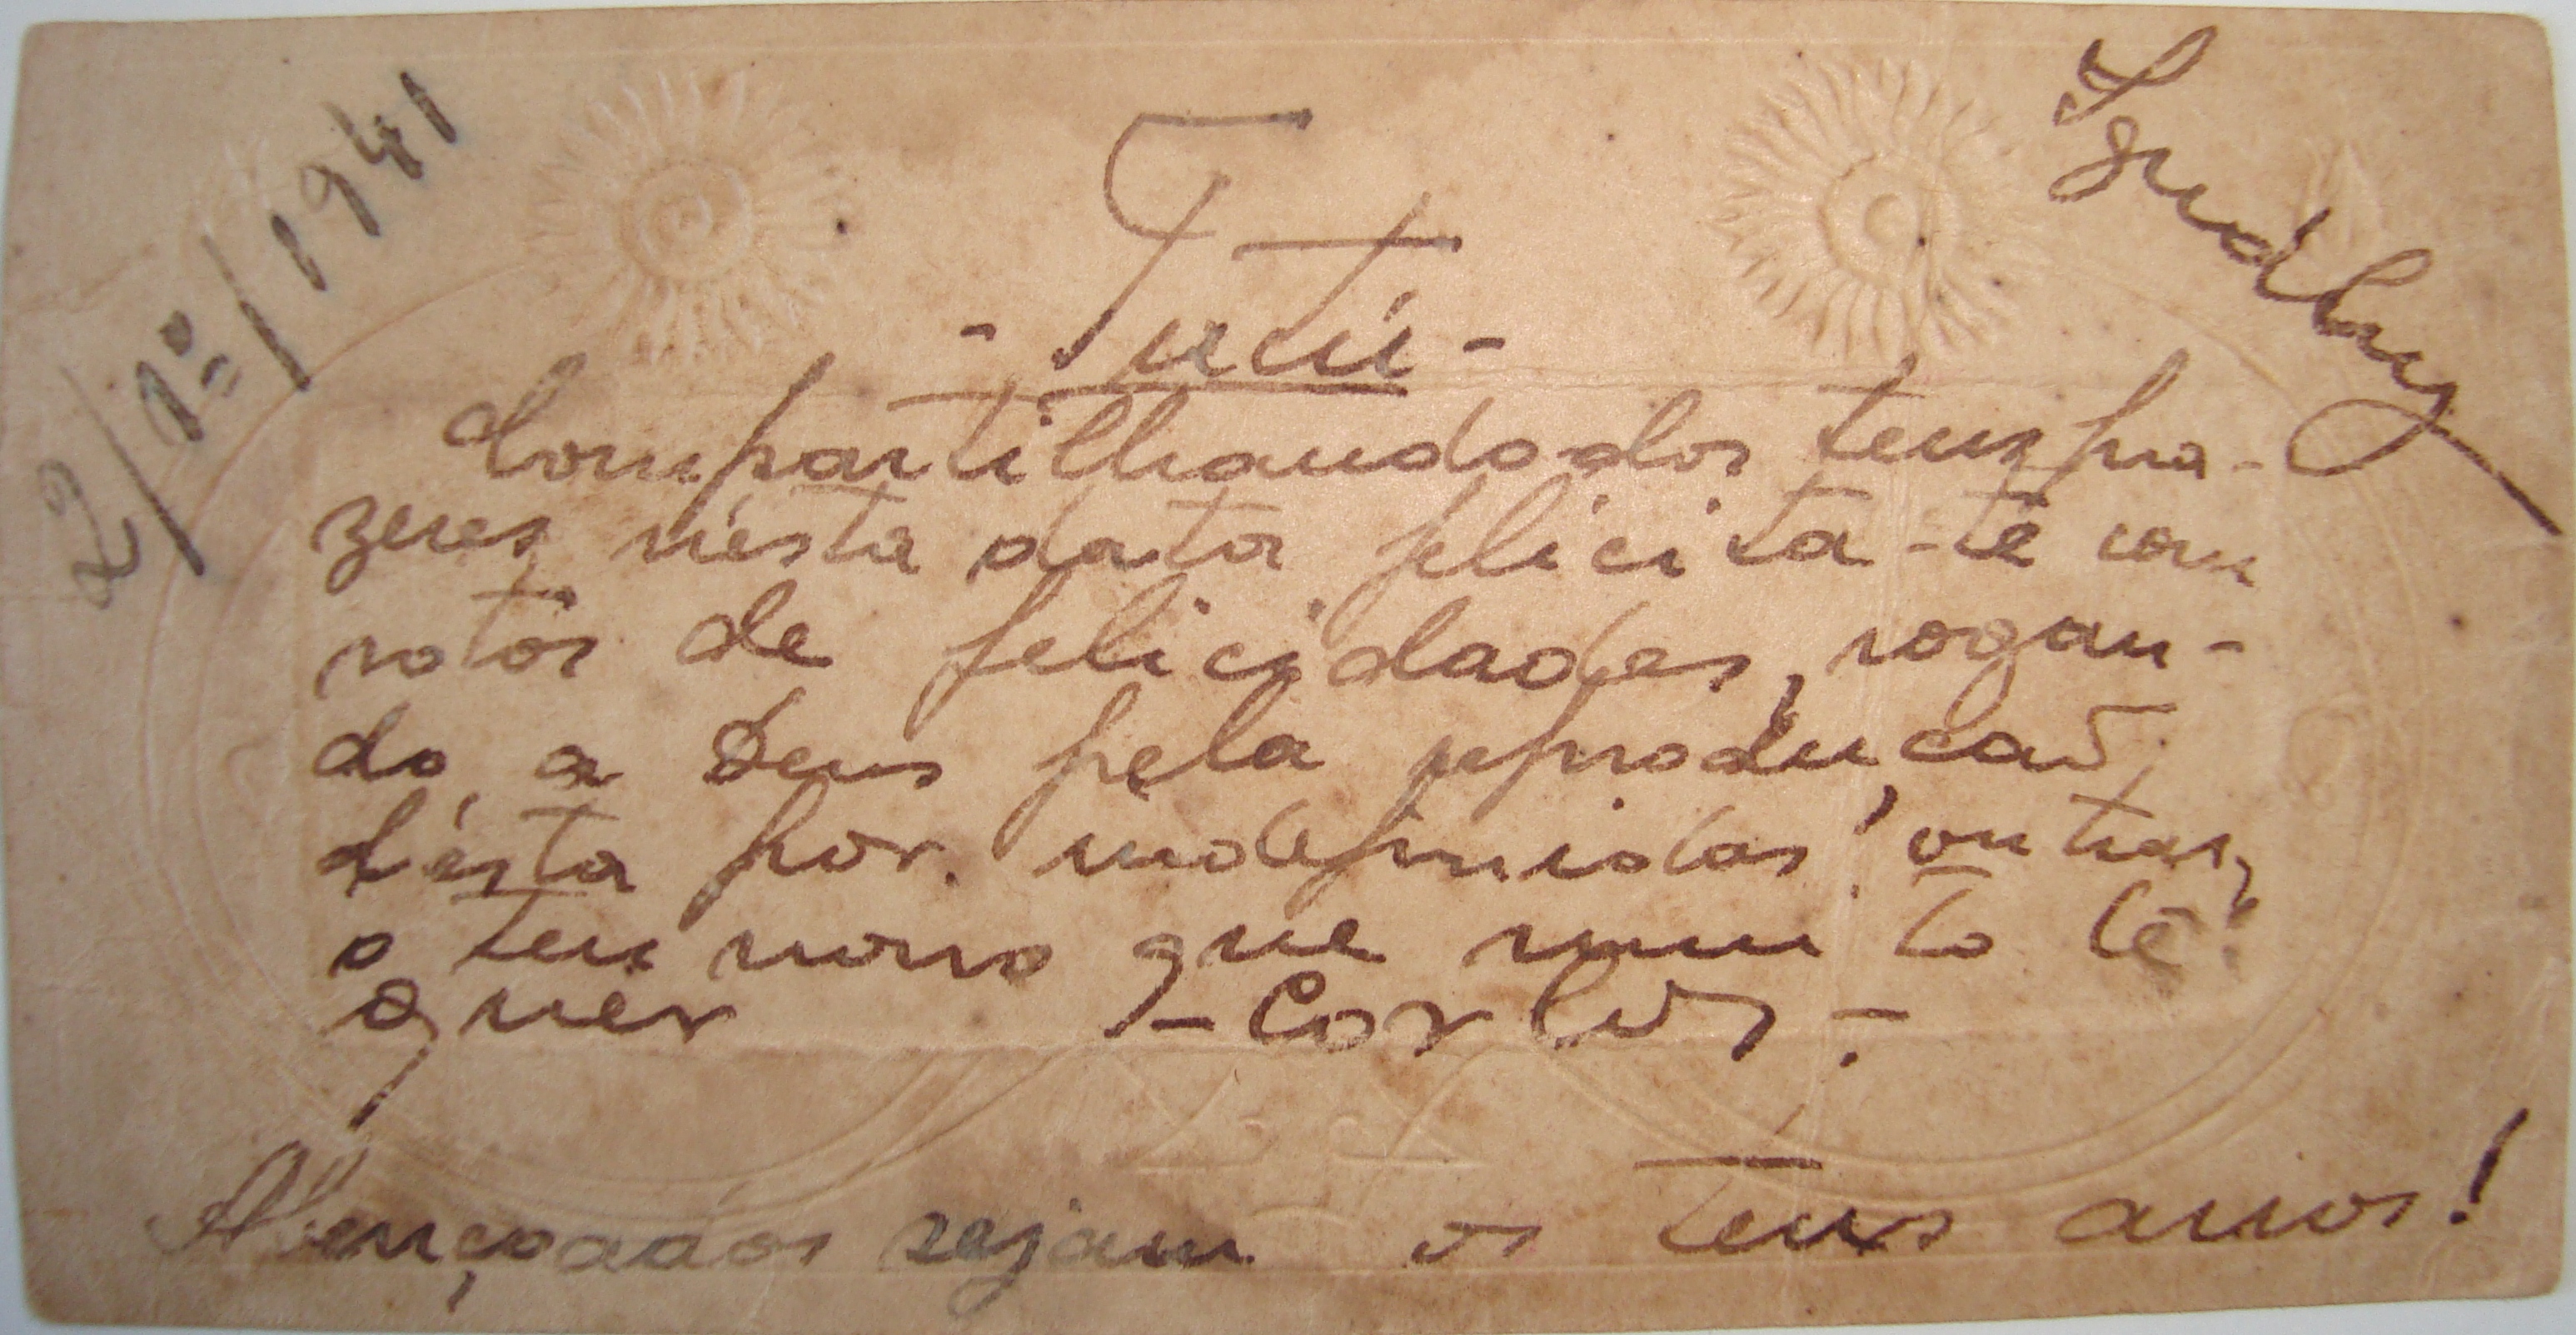 2/1º/1941
- Tutú -
Compartilhando dos teus pra-
zeres n'ésta data felicita-te com
votos de felicidades, rogan-
do a Deus pela reprodução
d'ésta por indefinidas outras,
o teu noivo que muito te
quer - Carlos -
Abençoados sejam os teus anos!